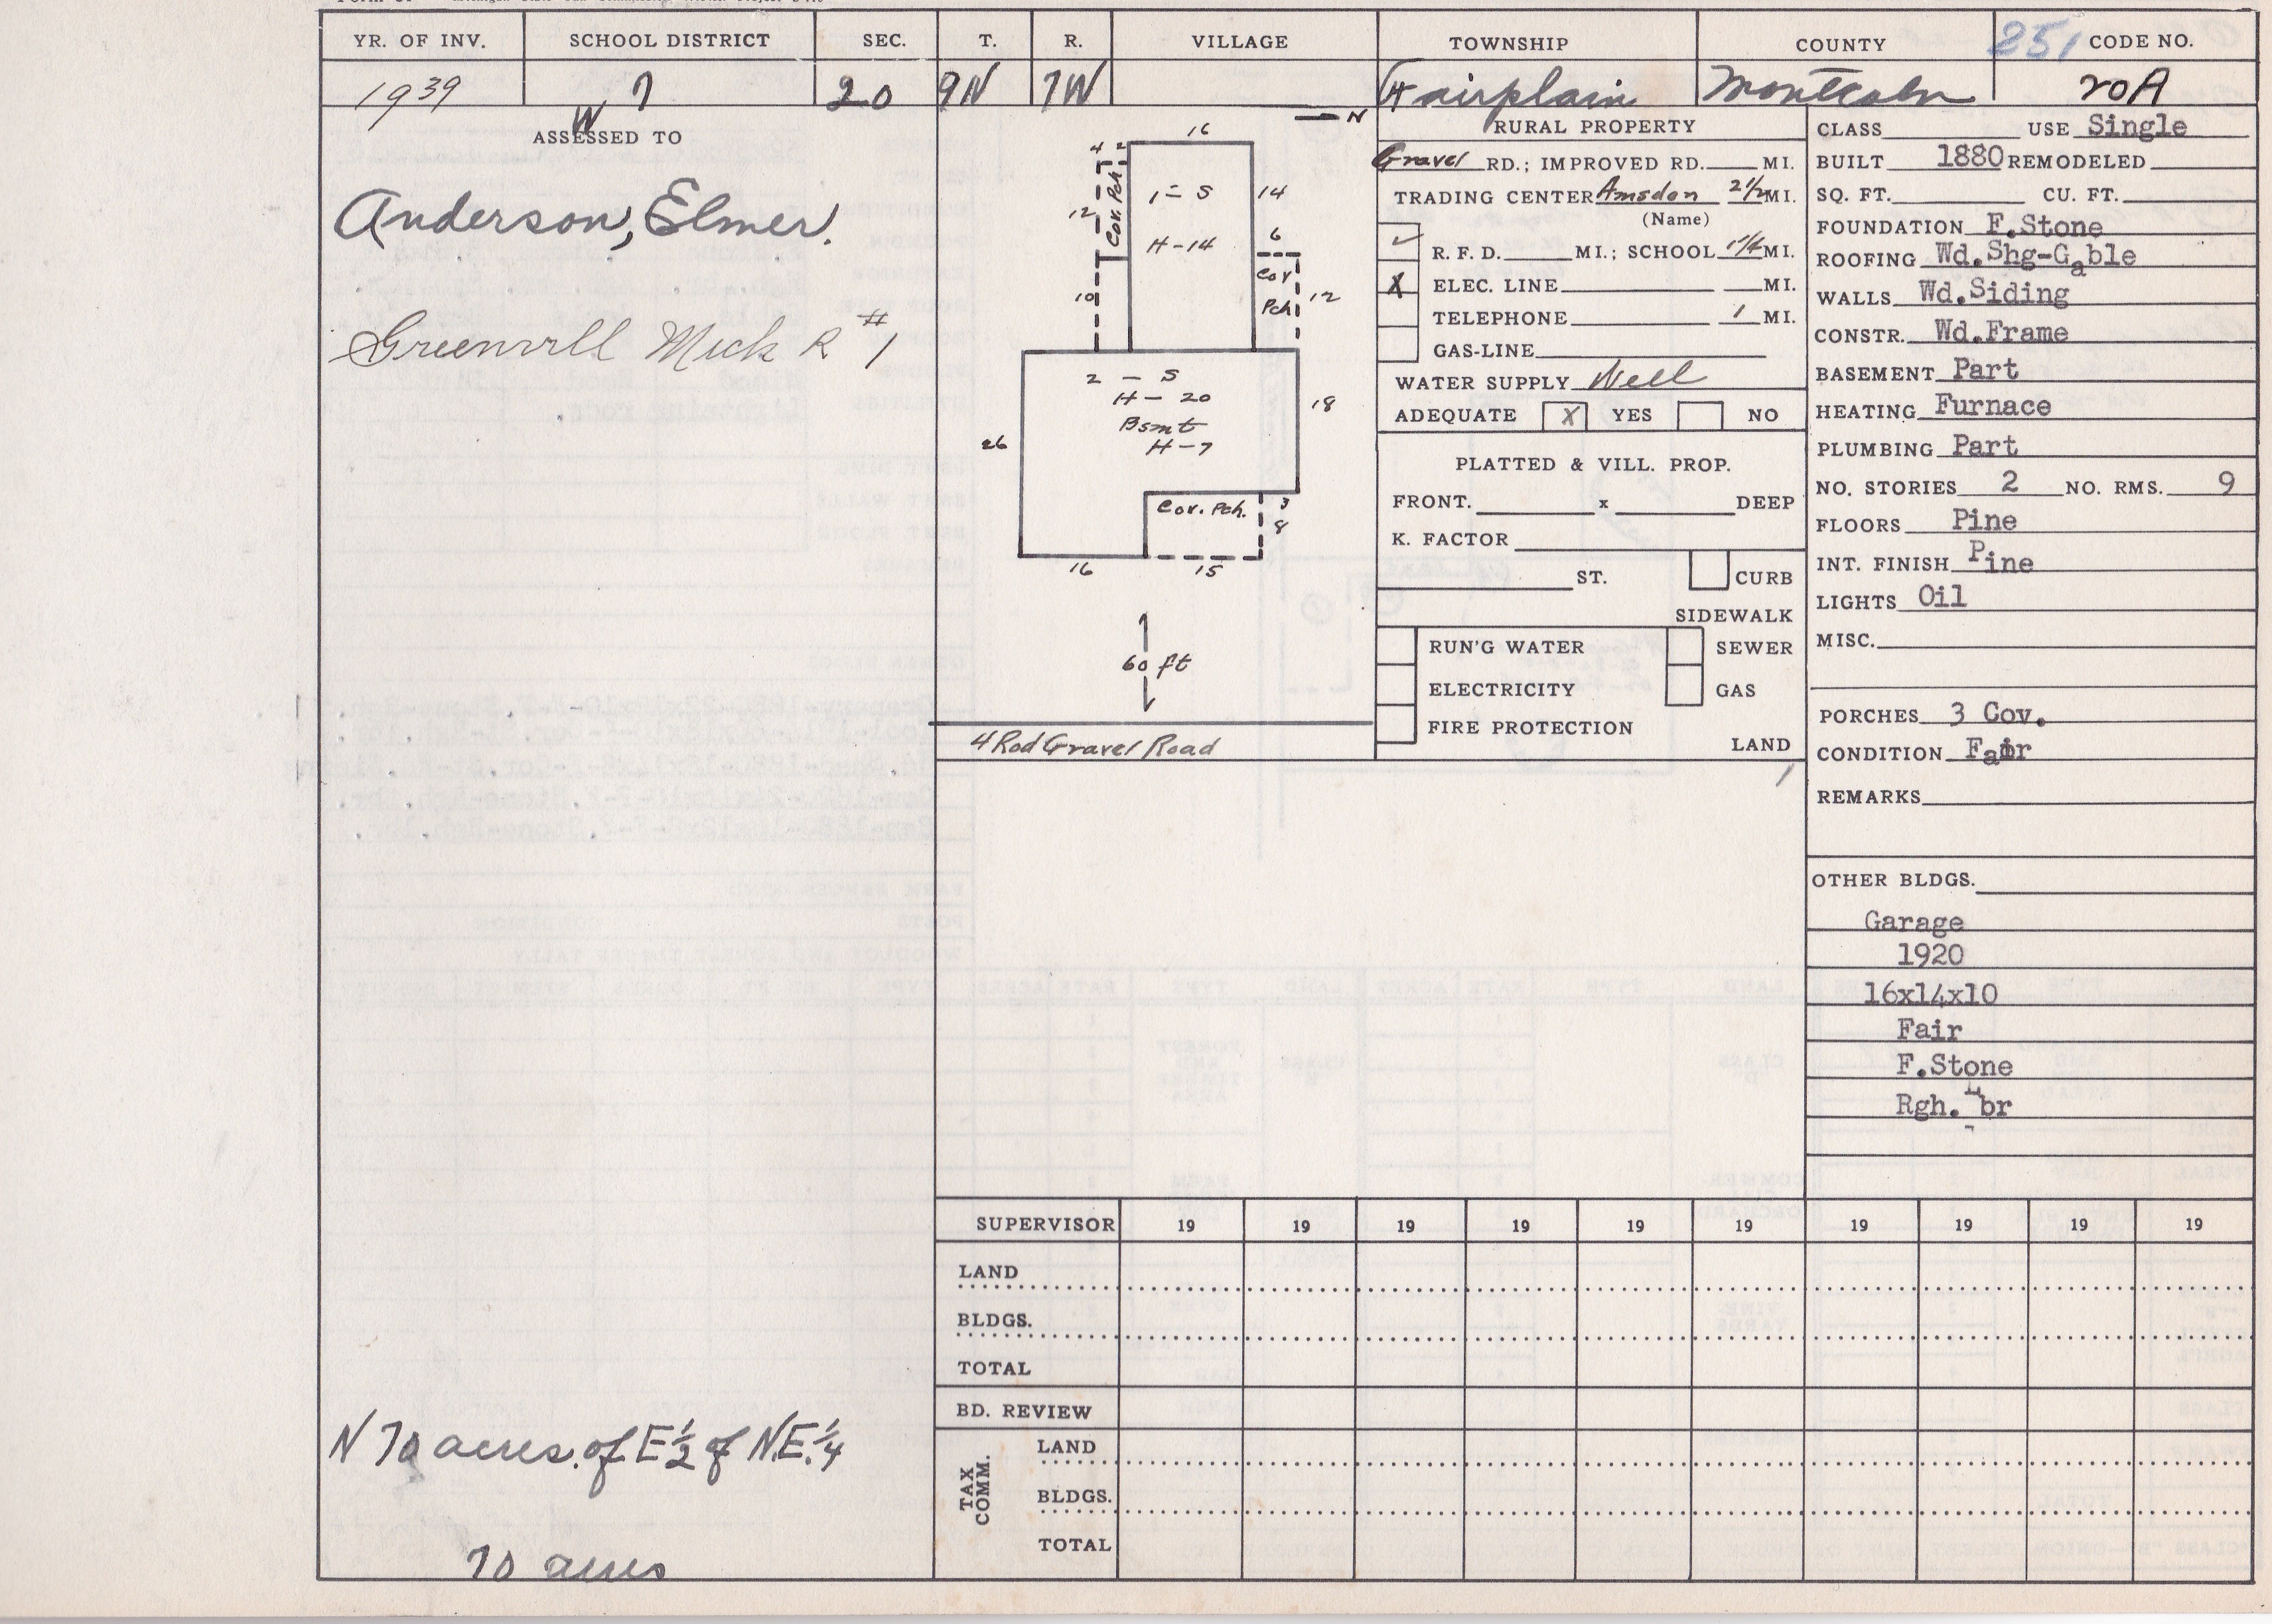 YR. OF INV. SCHOOL DISTRICT SEC. T. R. VILLAGE TOWNSHIP COUNTY 251 CODE NO.
1939 7 20 9N 7W Fairplain Montcalm 20A
W
ASSESSED TO
Anderson, Elmer.
Greenvill Mich R #1
N 70 acres of E 1/2 of N.E. 1/4
70 acres
N
16
4 2
Cov. Pch
12
1 - S
14
H - 14
6
Cov
Pch
12
10
2 - S
H - 20
Bsmt
H - 7
18
26
Cov. Pch.
3
8
16
15
60 ft
4 Rod Gravel Road
RURAL PROPERTY
Gravel RD.; IMPROVED RD. MI.
TRADING CENTER Amsden 2 1/2 MI.
(Name)
✓ R. F. D. MI.; SCHOOL 1 1/4 MI.
X ELEC. LINE MI.
TELEPHONE 1 MI.
GAS-LINE
WATER SUPPLY Well
ADEQUATE X YES NO
PLATTED & VILL. PROP.
FRONT. x DEEP
K. FACTOR
ST. CURB
SIDEWALK
RUN'G WATER SEWER
ELECTRICITY GAS
FIRE PROTECTION
LAND
CLASS USE Single
BUILT 1880 REMODELED
SQ. FT. CU. FT.
FOUNDATION F.Stone
ROOFING Wd.Shg-Gable
WALLS Wd.Siding
CONSTR. Wd.Frame
BASEMENT Part
HEATING Furnace
PLUMBING Part
NO. STORIES 2 NO. RMS. 9
FLOORS Pine
INT. FINISH Pine
LIGHTS Oil
MISC.
PORCHES 3 Cov.
CONDITION Fair
REMARKS
OTHER BLDGS.
Garage
1920
16x14x10
Fair
F.Stone
Rgh. Lbr
SUPERVISOR 19 19 19 19 19 19 19 19 19 19
LAND
BLDGS.
TOTAL
BD. REVIEW
TAX COMM.
LAND
BLDGS.
TOTAL